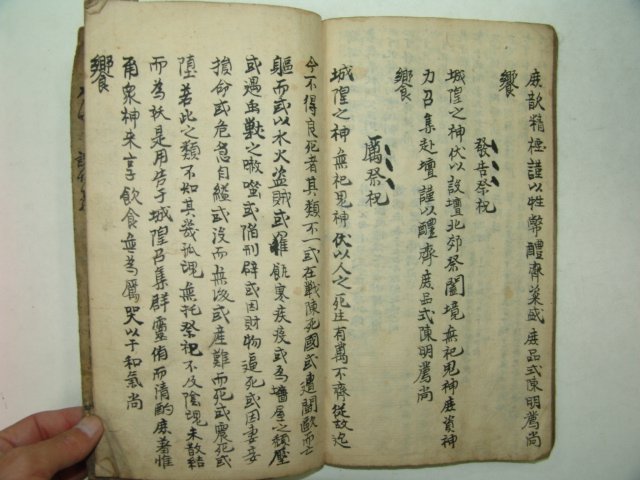 庶歆精禋謹以牲幣醴齊粢盛庶品式陳明薦尙
饗
發告祭祝
城隍之神伏以設壇北郊祭闔境無祀鬼神庶資神
力召集赴壇謹以醴齊庶品式陳明薦尙
饗
厲祭祝
城隍之神無祀鬼神伏以人之死生有萬不齊從故迄
今不得良死者其類不一或在戰陳死國或遭鬪敺而亡
軀而或以水火盜賊或罹飢寒疾疫或爲墻屋之頹壓
或遇虫獸之噬螫或陷刑辟或因財物逼死或因妻妾
捘命或危急自縊或沒而無後或產難而死或震死或
墮若此之類不知其幾孤魂無托祭祀不及陰魂未散結
而爲妖是用告于城隍召集群靈侑而淸酌庶羞惟
甬衆神來享飮食無爲厲哭以干和氣尙
饗